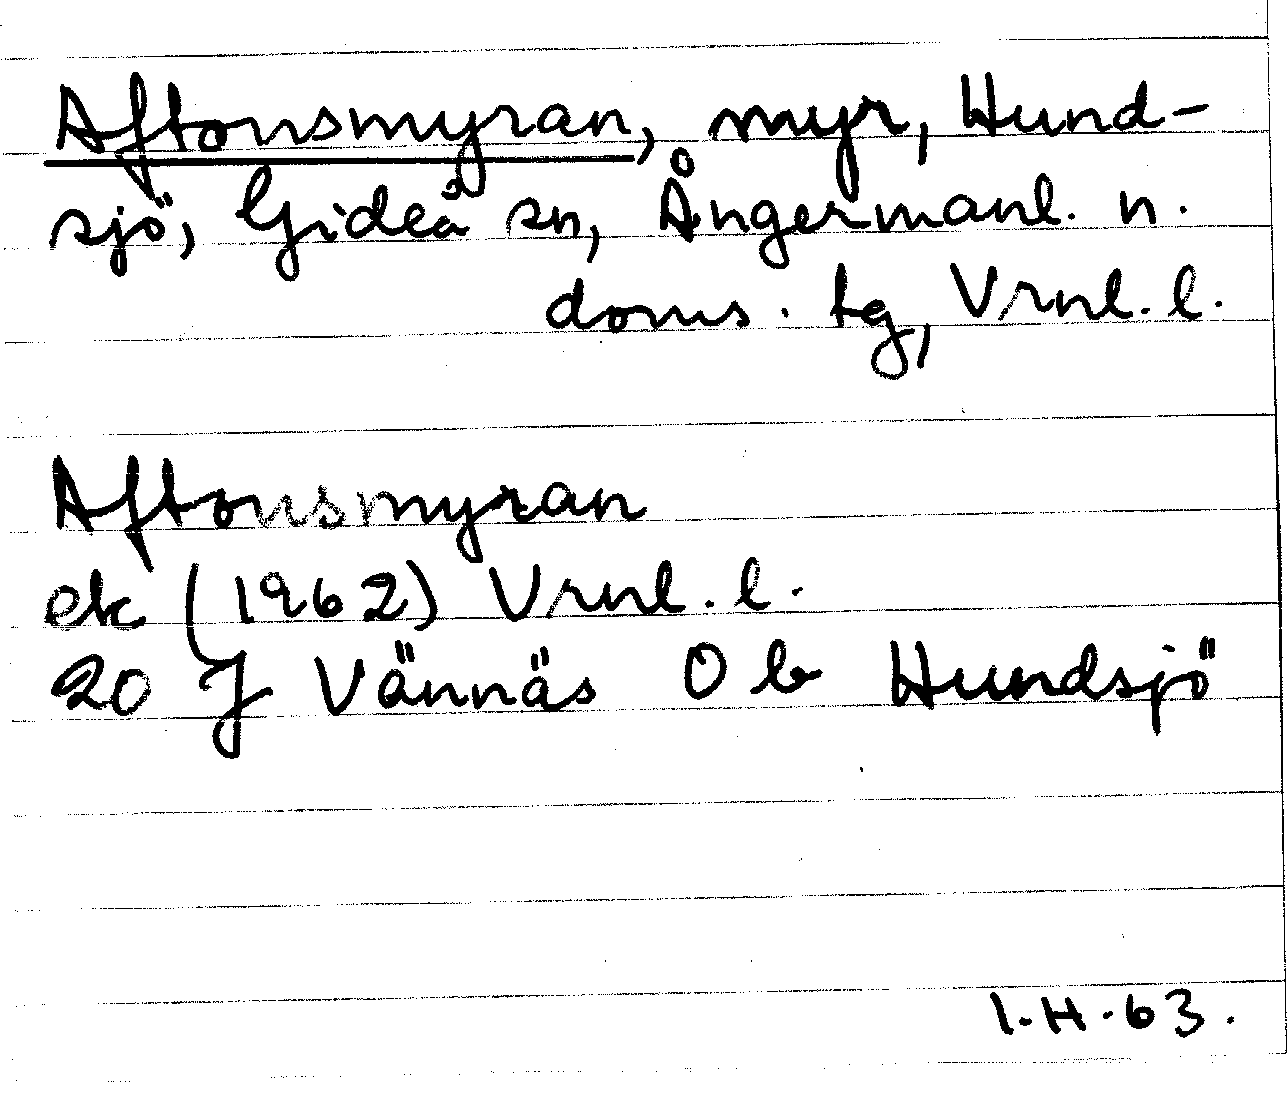 Aftonsmyran, myr, Hund-
sjö, Gideå sn, Ångermanl. n.
doms. tg, Vrnl. l.
Aftonsmyran
ek (1962) Vrnl. l.
20 J Vännäs O b Hundsjö
I.H.63.